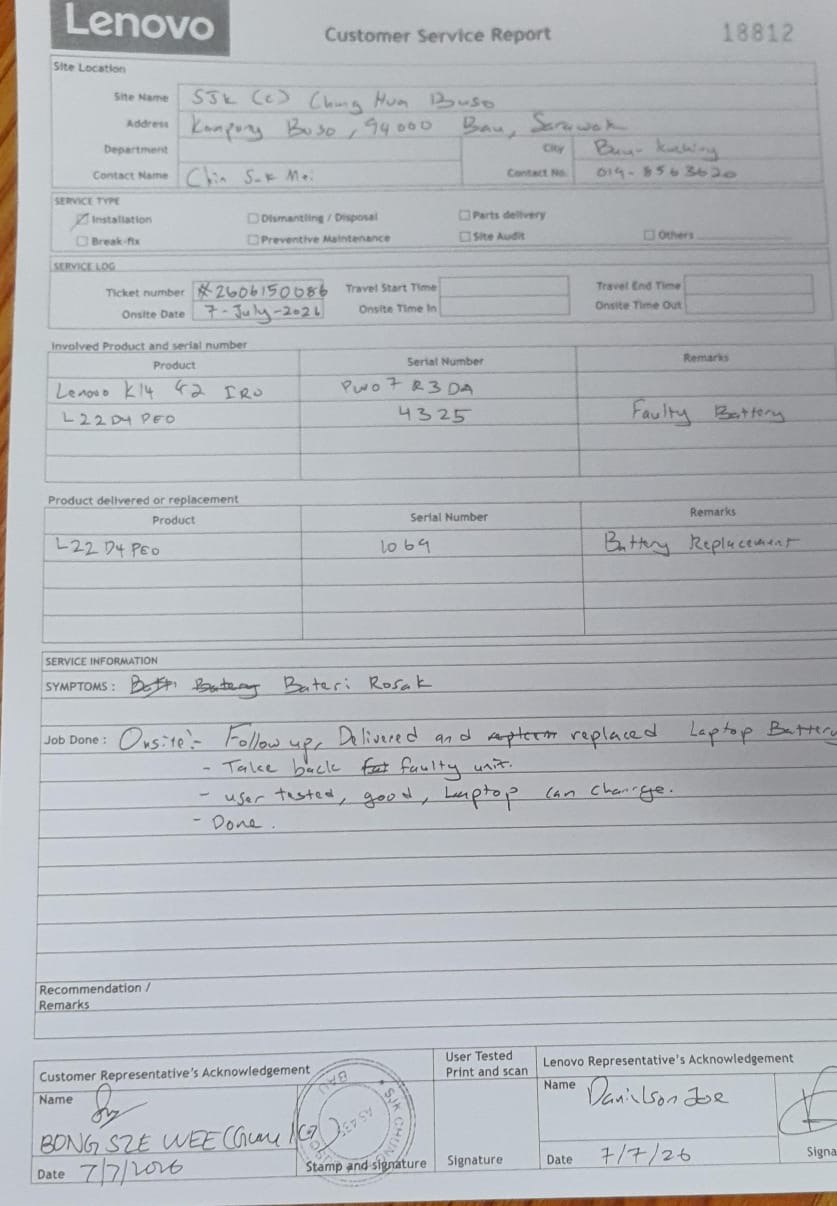 Lenovo
Customer Service Report 18812
Site Location
Site Name SJK (C) Chung Hua Buso
Address Kampung Buso, 94000 Bau, Sarawak
Department City Bau - Kuching
Contact Name Chin Suk Mei Contact No. 019-8563620
SERVICE TYPE
Installation Dismantling / Disposal Parts delivery
Break-fix Preventive Maintenance Site Audit Others
SERVICE LOG
Ticket number #2606150086 Travel Start Time Travel End Time
Onsite Date 7-July-2026 Onsite Time In Onsite Time Out
Involved Product and serial number
Product Serial Number Remarks
Lenovo K14 G2 IRU PW07R3DA
L22D4PE0 4325 Faulty Battery
Product delivered or replacement
Product Serial Number Remarks
L22D4PE0 1069 Battery Replacement
SERVICE INFORMATION
SYMPTOMS : Bateri Rosak
Job Done : Onsite:- Follow up, Delivered and replaced Laptop Battery
- Take back faulty unit.
- user tested, good, Laptop can charge.
- Done.
Recommendation /
Remarks
Customer Representative's Acknowledgement User Tested Print and scan Lenovo Representative's Acknowledgement
Name Name Danielson Joe
BONG SZE WEE
Date 7/7/2026 Stamp and signature Signature Date 7/7/26 Signa